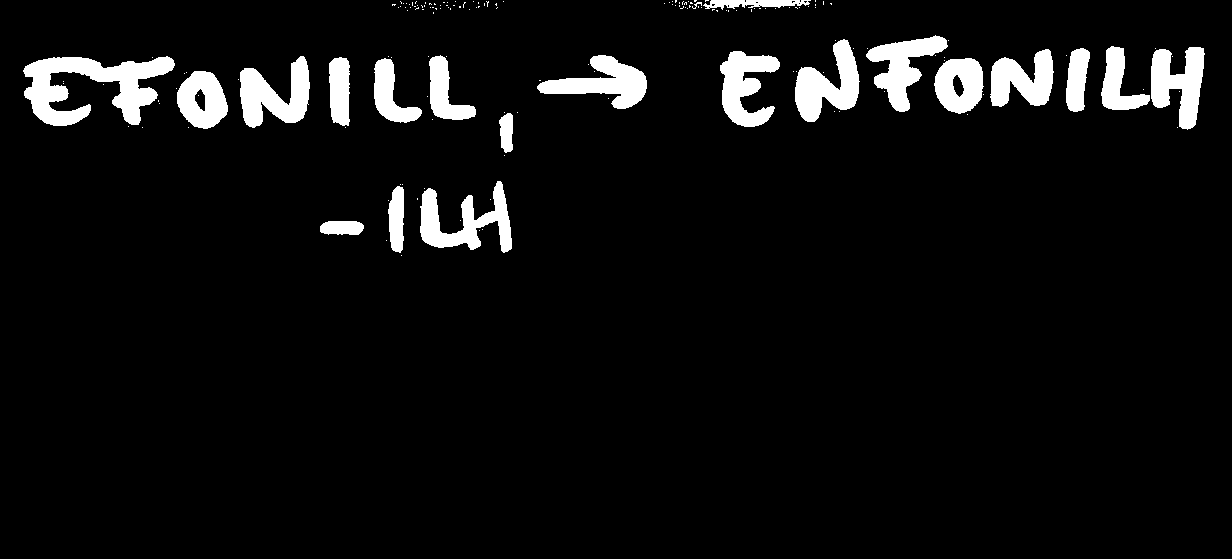 EFONILL, → ENFONILH
-ILH